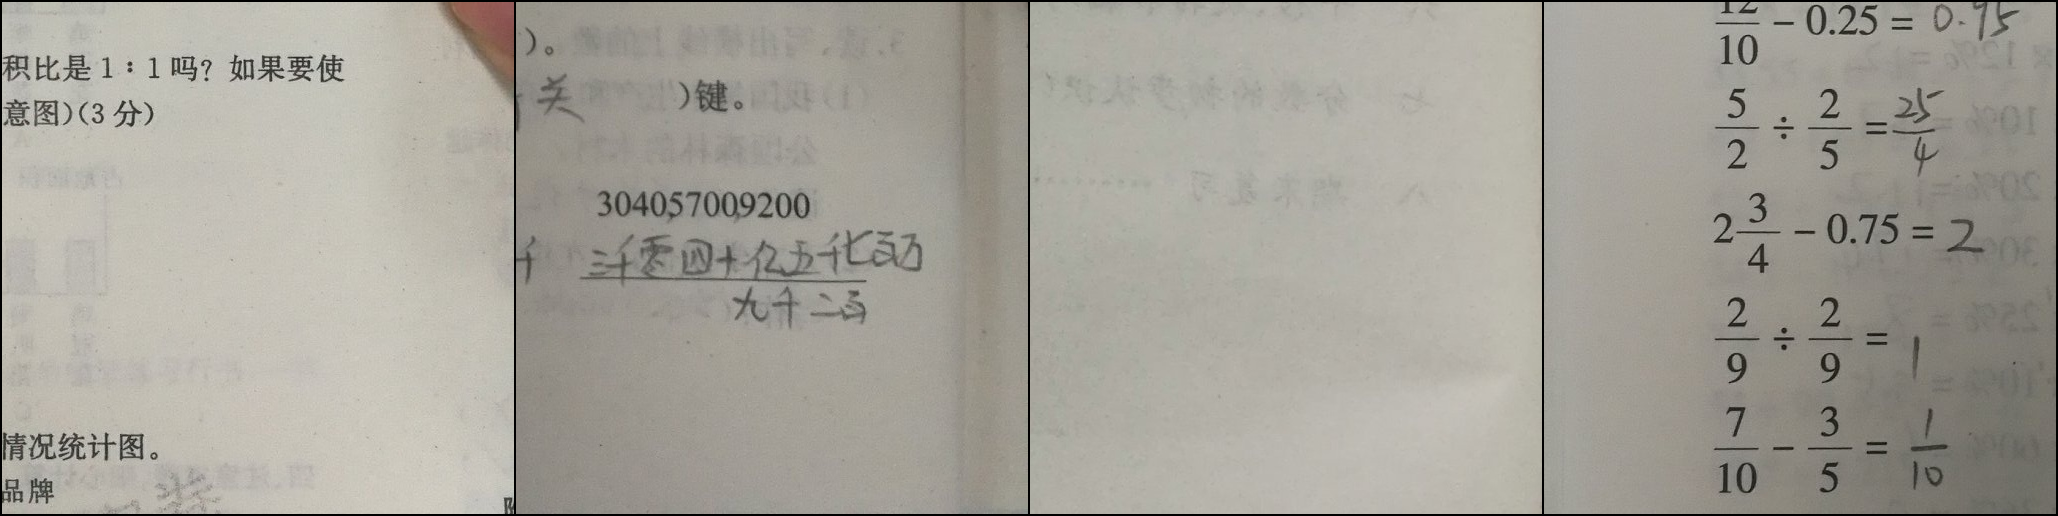 积比是1∶1吗？如果要使
意图)(3分)
情况统计图。
品牌
)。
关 )键。
304057009200
千 三千零四十亿五千七百万
九千二百
12/10 − 0.25 = 0.95
5/2 ÷ 2/5 = 25/4
2 3/4 − 0.75 = 2
2/9 ÷ 2/9 = 1
7/10 − 3/5 = 1/10